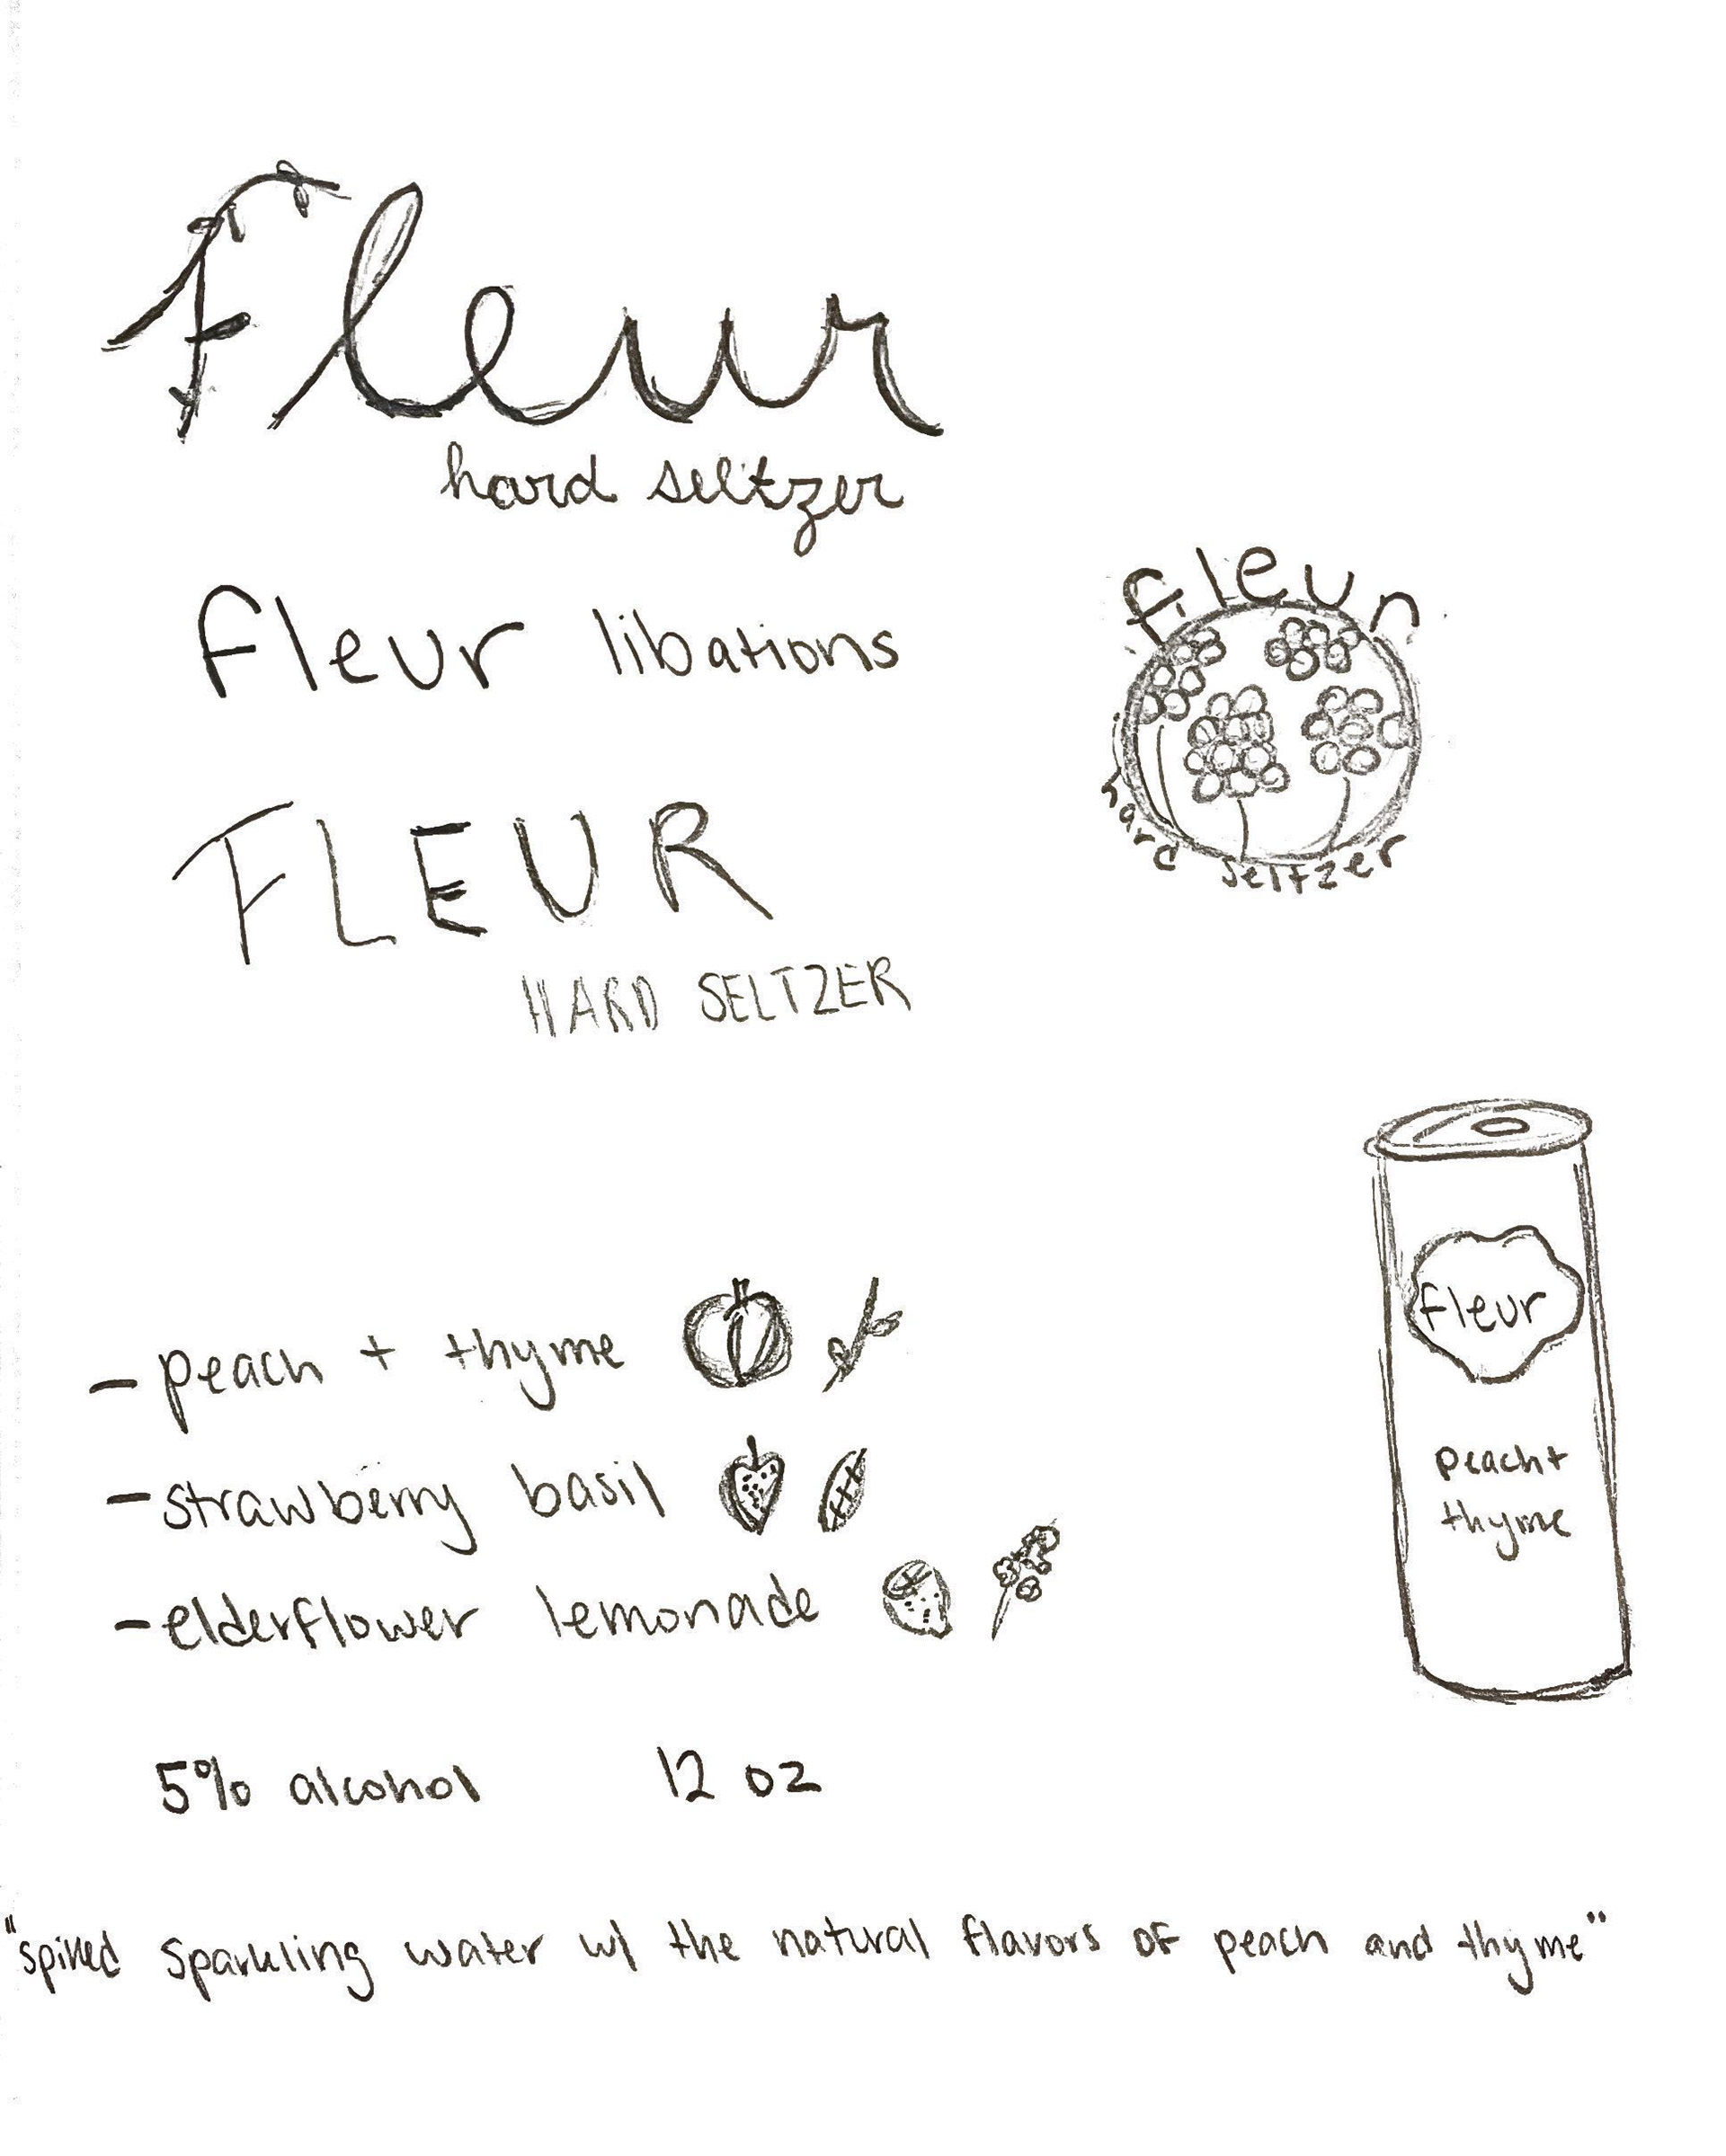 Fleur
hard seltzer
fleur libations
fleur
hard seltzer
FLEUR
HARD SELTZER
- peach + thyme
- strawberry basil
- elderflower lemonade
fleur
peach +
thyme
5% alcohol 12 oz
"spiked sparkling water w/ the natural flavors of peach and thyme"